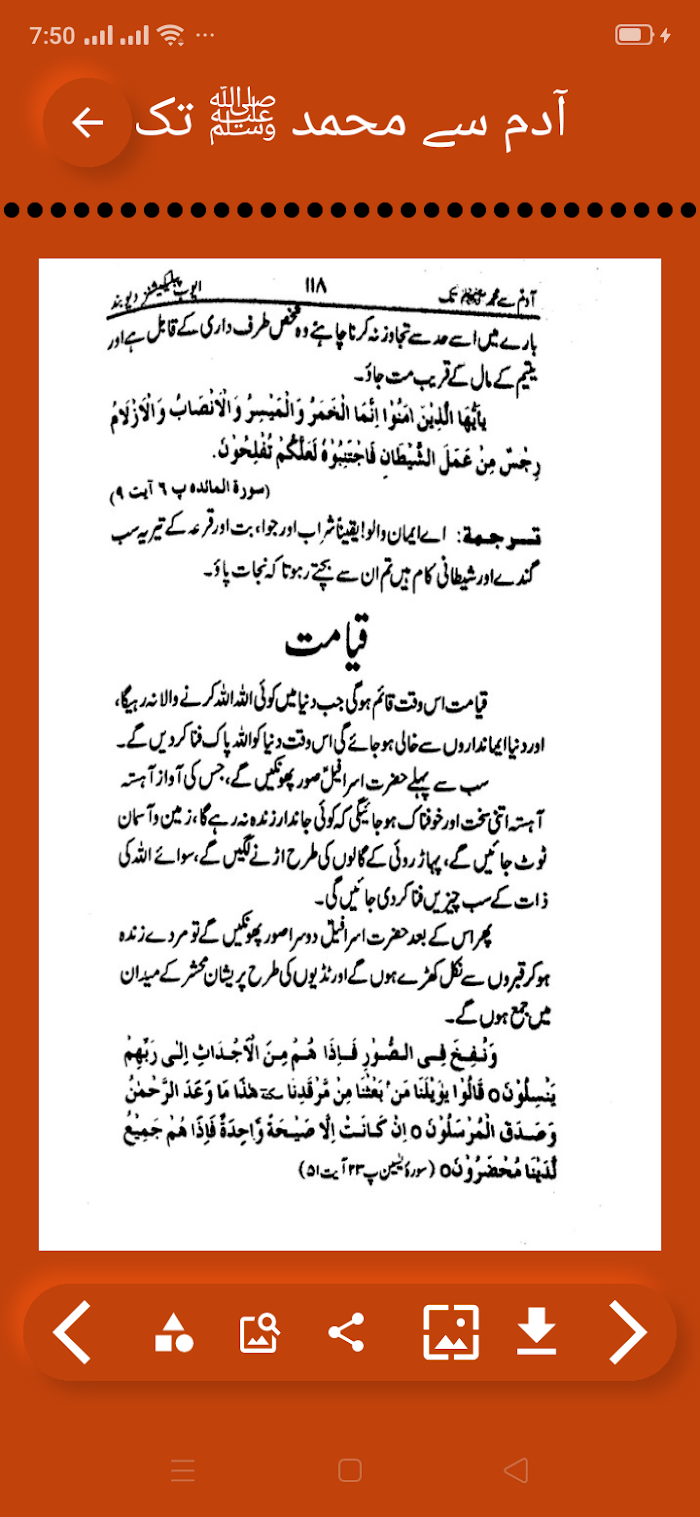 7:50
آدم سے محمد ﷺ تک
آدم سے محمد ﷺ تک ۱۱۸ ایوب پبلیکیشنز دیوبند
بارے میں اسے حد سے تجاوز نہ کرنا چاہئے وہ شخص طرف داری کے قابل ہے اور
یتیم کے مال کے قریب مت جاؤ۔
يٰاَيُّهَا الَّذِيْنَ اٰمَنُوْا اِنَّمَا الْخَمْرُ وَالْمَيْسِرُ وَالْاَنْصَابُ وَالْاَزْلَامُ
رِجْسٌ مِنْ عَمَلِ الشَّيْطَانِ فَاجْتَنِبُوْهُ لَعَلَّكُمْ تُفْلِحُوْنَ.
(سورة المائدہ پ ٦ آیت ۹)
ترجمة: اے ایمان والو! یقیناً شراب اور جوا، بت اور قرعہ کے تیر یہ سب
گندے اور شیطانی کام ہیں تم ان سے بچتے رہو تا کہ نجات پاؤ۔
قیامت
قیامت اس وقت قائم ہوگی جب دنیا میں کوئی اللہ اللہ کرنے والا نہ رہیگا،
اور دنیا ایمانداروں سے خالی ہو جائے گی اس وقت دنیا کو اللہ پاک فنا کردیں گے۔
سب سے پہلے حضرت اسرافیلؑ صور پھونکیں گے، جس کی آواز آہستہ
آہستہ اتنی سخت اور خوفناک ہو جائیگی کہ کوئی جاندار زندہ نہ رہے گا، زمین و آسمان
ٹوٹ جائیں گے، پہاڑ روئی کے گالوں کی طرح اڑنے لگیں گے، سوائے اللہ کی
ذات کے سب چیزیں فنا کردی جائیں گی۔
پھر اس کے بعد حضرت اسرافیلؑ دوسرا صور پھونکیں گے تو مردے زندہ
ہو کر قبروں سے نکل کھڑے ہوں گے اور ٹڈیوں کی طرح پریشان محشر کے میدان
میں جمع ہوں گے۔
وَنُفِخَ فِي الصُّوْرِ فَاِذَا هُمْ مِنَ الْاَجْدَاثِ اِلٰى رَبِّهِمْ
يَنْسِلُوْنَ○ قَالُوْا يٰوَيْلَنَا مَنْ بَعَثَنَا مِنْ مَّرْقَدِنَا هٰذَا مَا وَعَدَ الرَّحْمٰنُ
وَصَدَقَ الْمُرْسَلُوْنَ○ اِنْ كَانَتْ اِلَّا صَيْحَةً وَّاحِدَةً فَاِذَا هُمْ جَمِيْعٌ
لَّدَيْنَا مُحْضَرُوْنَ○ (سورۂ یٰسین پ ۲۳ آیت ۵۱)